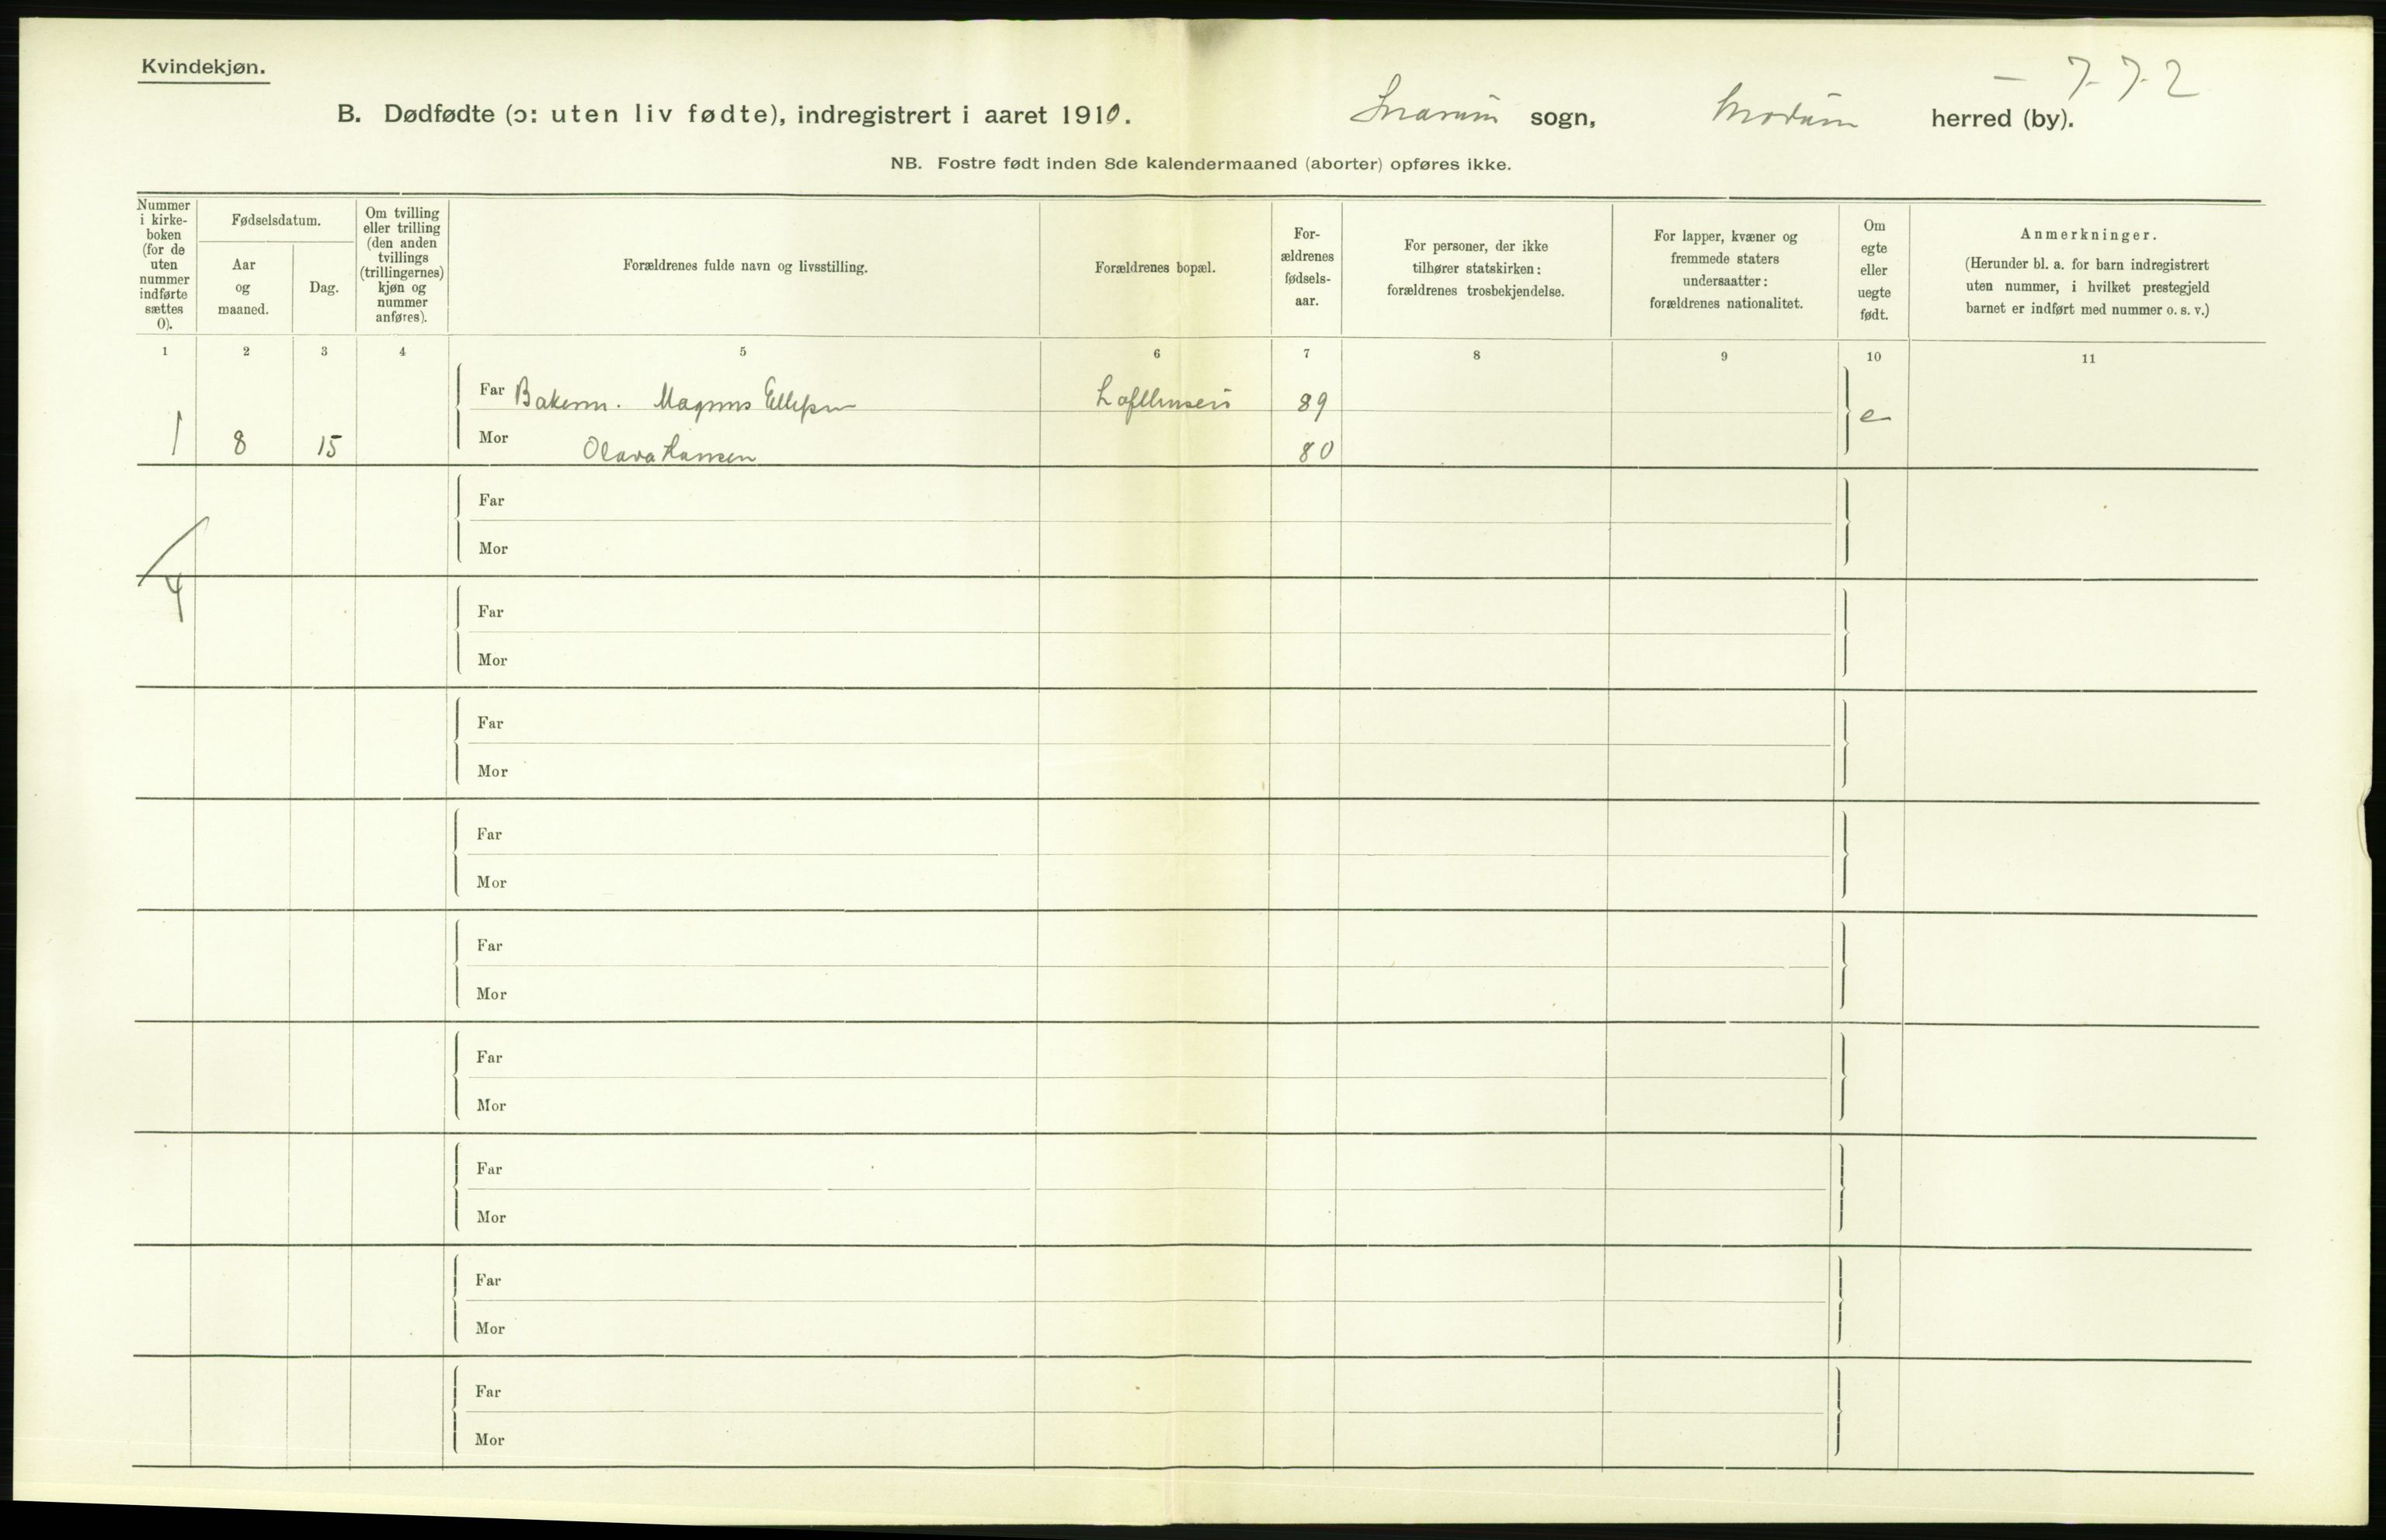 Kvindekjøn.
— 7-7-2
B. Dødfødte (ɔ: uten liv fødte), indregistrert i aaret 1910. Snarum sogn, Modum herred (by).
NB. Fostre født inden 8de kalendermaaned (aborter) opføres ikke.
Nummer
i kirke-
boken
(for de
uten
nummer
indførte
sættes
0).
Fødselsdatum.
Aar
og
maaned.
Dag.
Om tvilling
eller trilling
(den anden
tvillings
(trillingernes)
kjøn og
nummer
anføres).
Forældrenes fulde navn og livsstilling.
Forældrenes bopæl.
For-
ældrenes
fødsels-
aar.
For personer, der ikke
tilhører statskirken:
forældrenes trosbekjendelse.
For lapper, kvæner og
fremmede staters
undersaatter:
forældrenes nationalitet.
Om
egte
eller
uegte
født.
Anmerkninger.
(Herunder bl. a. for barn indregistrert
uten nummer, i hvilket prestegjeld
barnet er indført med nummer o. s. v.)
1 2 3 4 5 6 7 8 9 10 11
Far Bakerm. Magnus Ellefsen Lofthusen 89 e
1 8 15 Mor Olava Hansen 80
Far
Mor
4
Far
Mor
Far
Mor
Far
Mor
Far
Mor
Far
Mor
Far
Mor
Far
Mor
Far
Mor